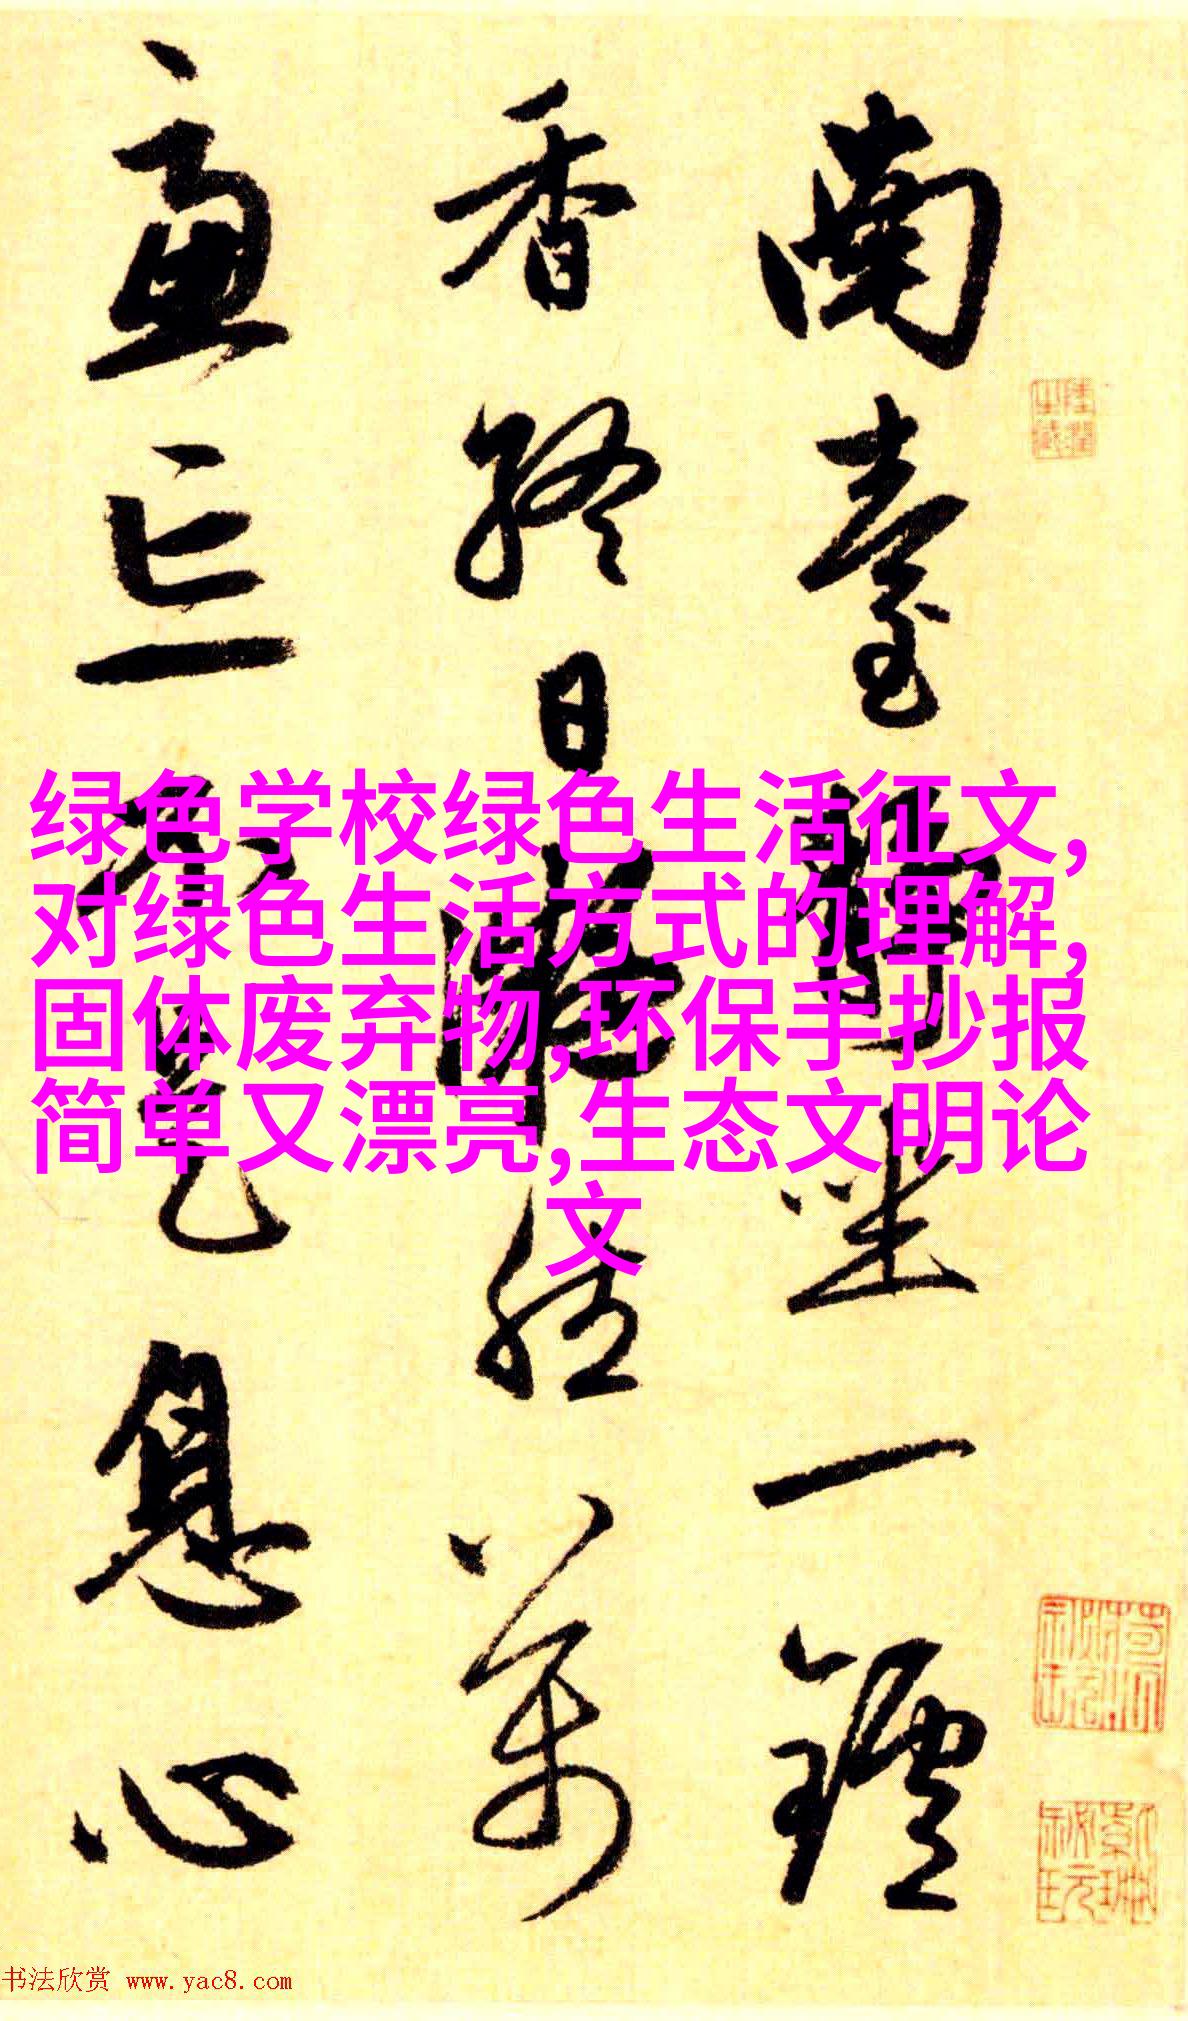 南臺静坐一鑪
香終日凝然萬
慮忘不是息心
绿色学校绿色生活征文,
对绿色生活方式的理解,
固体废弃物,环保手抄报
简单又漂亮,生态文明论
文
书法欣赏 www.yac8.com